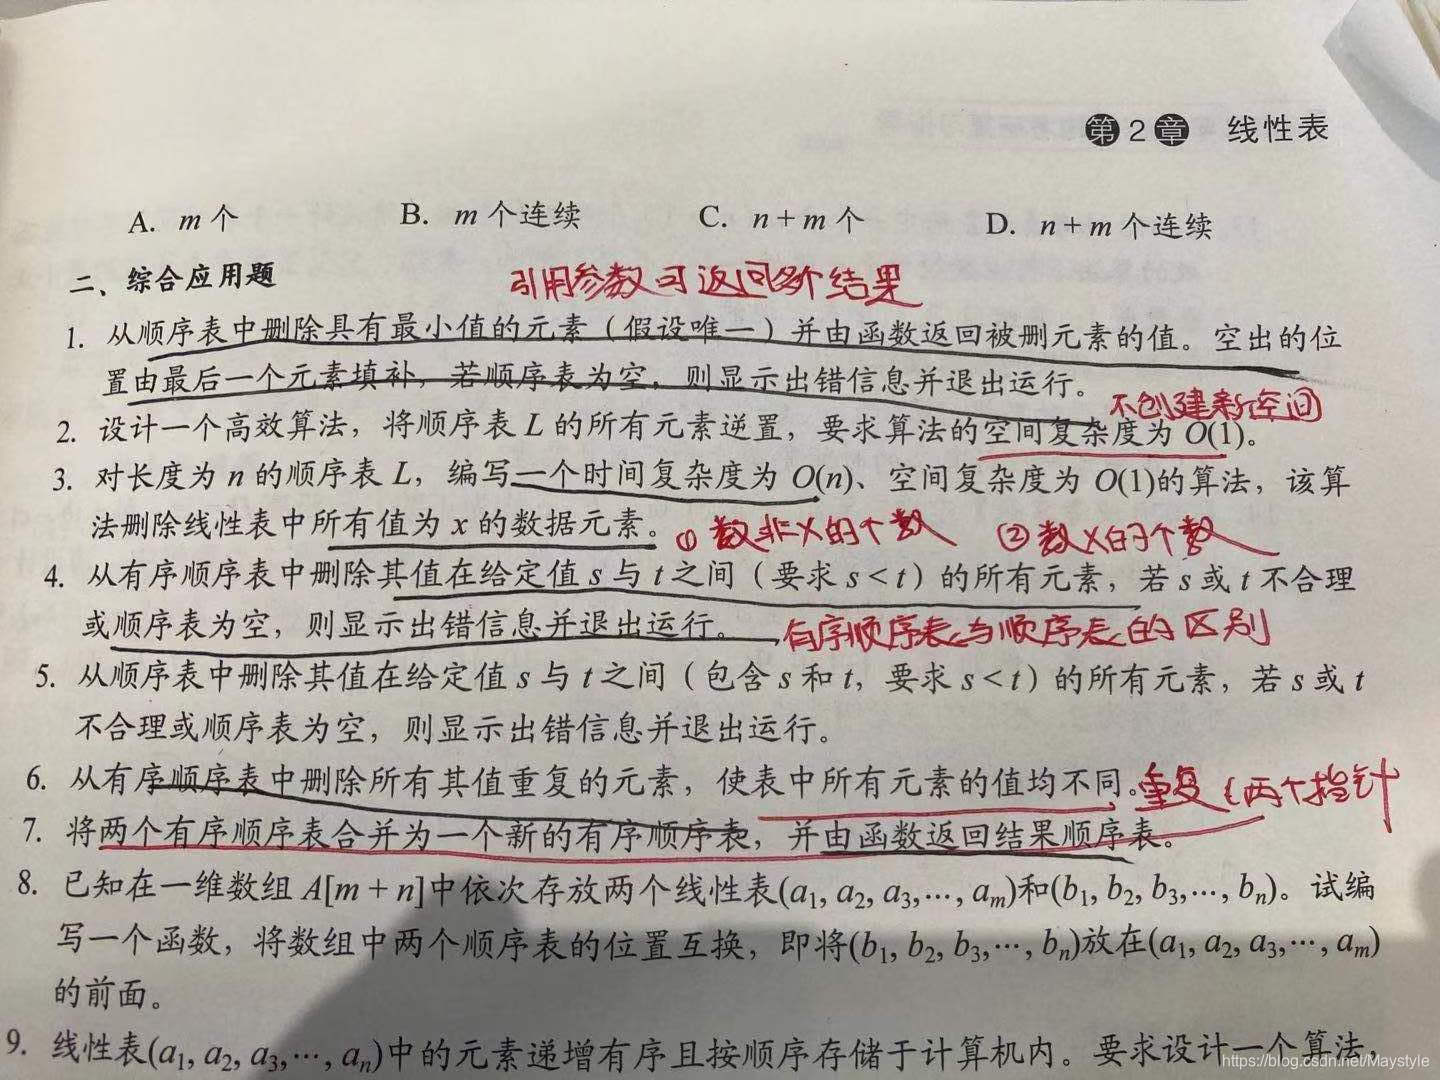 第2章 线性表
A. m 个 B. m 个连续 C. n + m 个 D. n + m 个连续
二、综合应用题
引用参数可返回多个结果
1. 从顺序表中删除具有最小值的元素（假设唯一）并由函数返回被删元素的值。空出的位
置由最后一个元素填补，若顺序表为空，则显示出错信息并退出运行。
不创建新空间
2. 设计一个高效算法，将顺序表 L 的所有元素逆置，要求算法的空间复杂度为 O(1)。
3. 对长度为 n 的顺序表 L，编写一个时间复杂度为 O(n)、空间复杂度为 O(1)的算法，该算
法删除线性表中所有值为 x 的数据元素。 ① 数非X的个数 ② 数X的个数
4. 从有序顺序表中删除其值在给定值 s 与 t 之间（要求 s < t）的所有元素，若 s 或 t 不合理
或顺序表为空，则显示出错信息并退出运行。 有序顺序表与顺序表的区别
5. 从顺序表中删除其值在给定值 s 与 t 之间（包含 s 和 t，要求 s < t）的所有元素，若 s 或 t
不合理或顺序表为空，则显示出错信息并退出运行。
6. 从有序顺序表中删除所有其值重复的元素，使表中所有元素的值均不同。 重复 两个指针
7. 将两个有序顺序表合并为一个新的有序顺序表，并由函数返回结果顺序表。
8. 已知在一维数组 A[m + n]中依次存放两个线性表(a1, a2, a3,…, am)和(b1, b2, b3,…, bn)。试编
写一个函数，将数组中两个顺序表的位置互换，即将(b1, b2, b3,…, bn)放在(a1, a2, a3,…, am)
的前面。
9. 线性表(a1, a2, a3,…, an)中的元素递增有序且按顺序存储于计算机内。要求设计一个算法，
https://blog.csdn.net/Maystyle